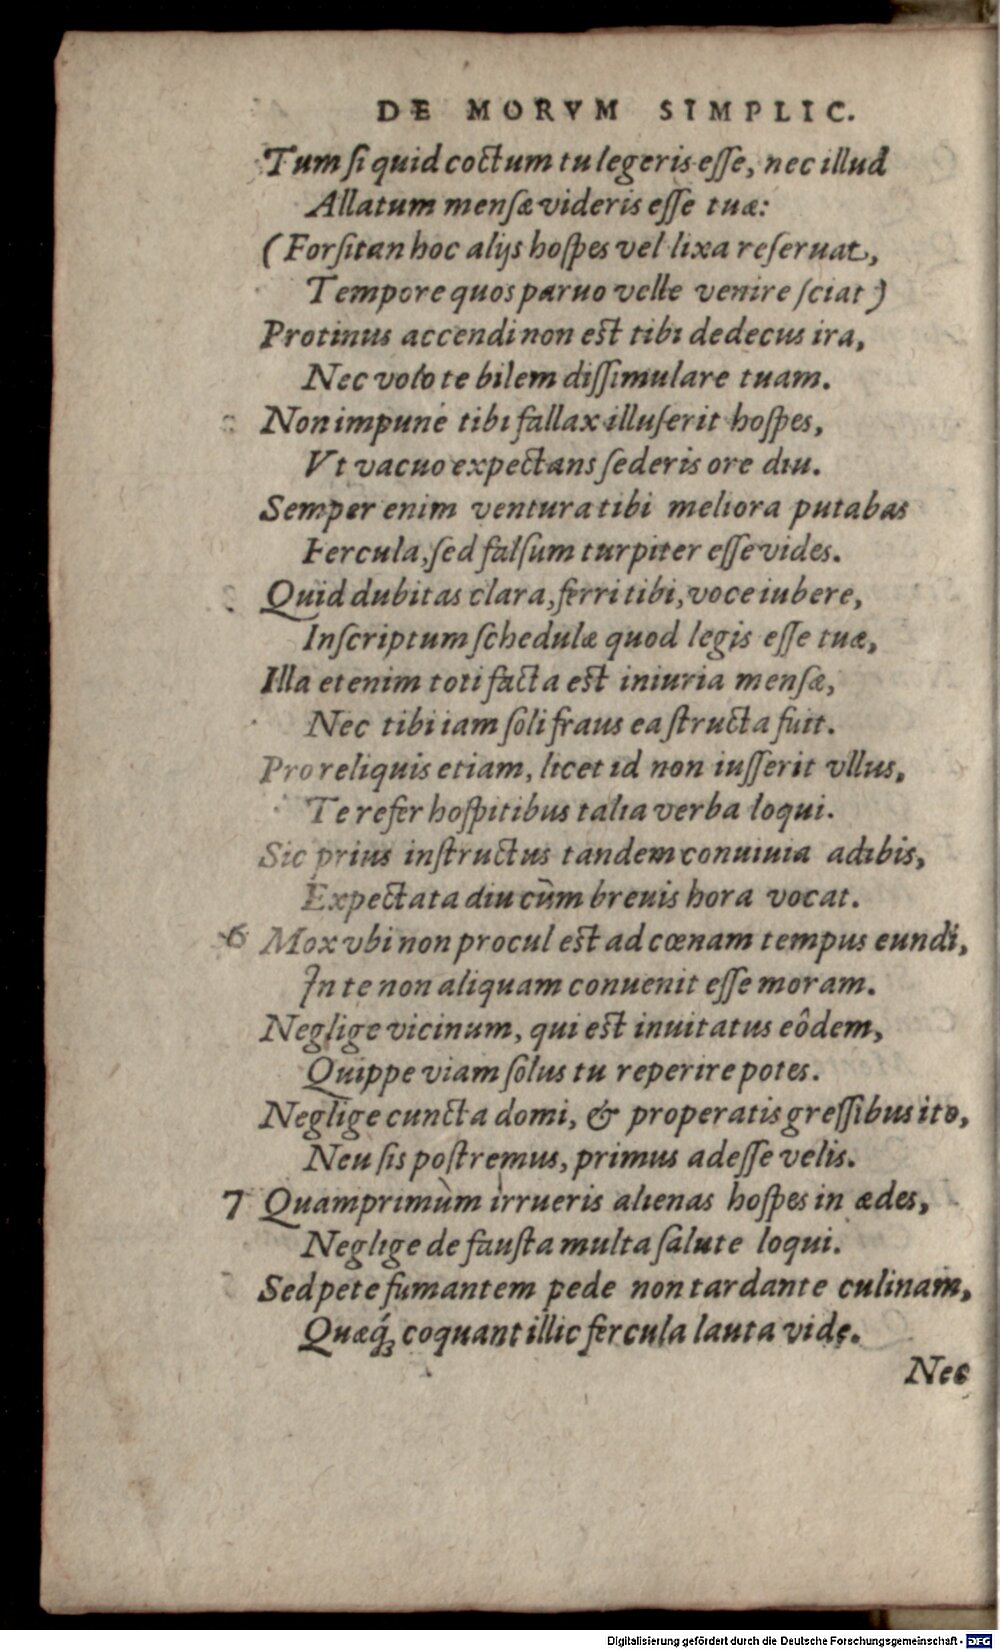 DE MORVM SIMPLIC.
Tum si quid coctum tu legeris esse, nec illud
Allatum mensæ videris esse tuæ:
(Forsitan hoc alijs hospes vel lixa reseruat,
Tempore quos paruo velle venire sciat)
Protinus accendi non est tibi dedecus ira,
Nec volo te bilem dissimulare tuam.
Non impunè tibi fallax illuserit hospes,
Vt vacuo expectans sederis ore diu.
Semper enim ventura tibi meliora putabas
Fercula, sed falsum turpiter esse vides.
Quid dubitas clara, ferri tibi, voce iubere,
Inscriptum schedulæ quod legis esse tuæ,
Illa etenim toti facta est iniuria mensæ,
Nec tibi iam soli fraus ea structa fuit.
Pro reliquis etiam, licet id non iusserit vllus,
Te refer hospitibus talia verba loqui.
Sic prius instructus tandem conuiuia adibis,
Expectata diu cùm breuis hora vocat.
6 Mox vbi non procul est ad cœnam tempus eundi,
In te non aliquam conuenit esse moram.
Neglige vicinum, qui est inuitatus eôdem,
Quippe viam solus tu reperire potes.
Neglige cuncta domi, & properatis gressibus ito,
Neu sis postremus, primus adesse velis.
7 Quamprimùm irrueris alienas hospes in ædes,
Neglige de fausta multa salute loqui.
Sed pete fumantem pede non tardante culinam,
Quæq́; coquant illic fercula lauta vide.
Nec
Digitalisierung gefördert durch die Deutsche Forschungsgemeinschaft - DFG